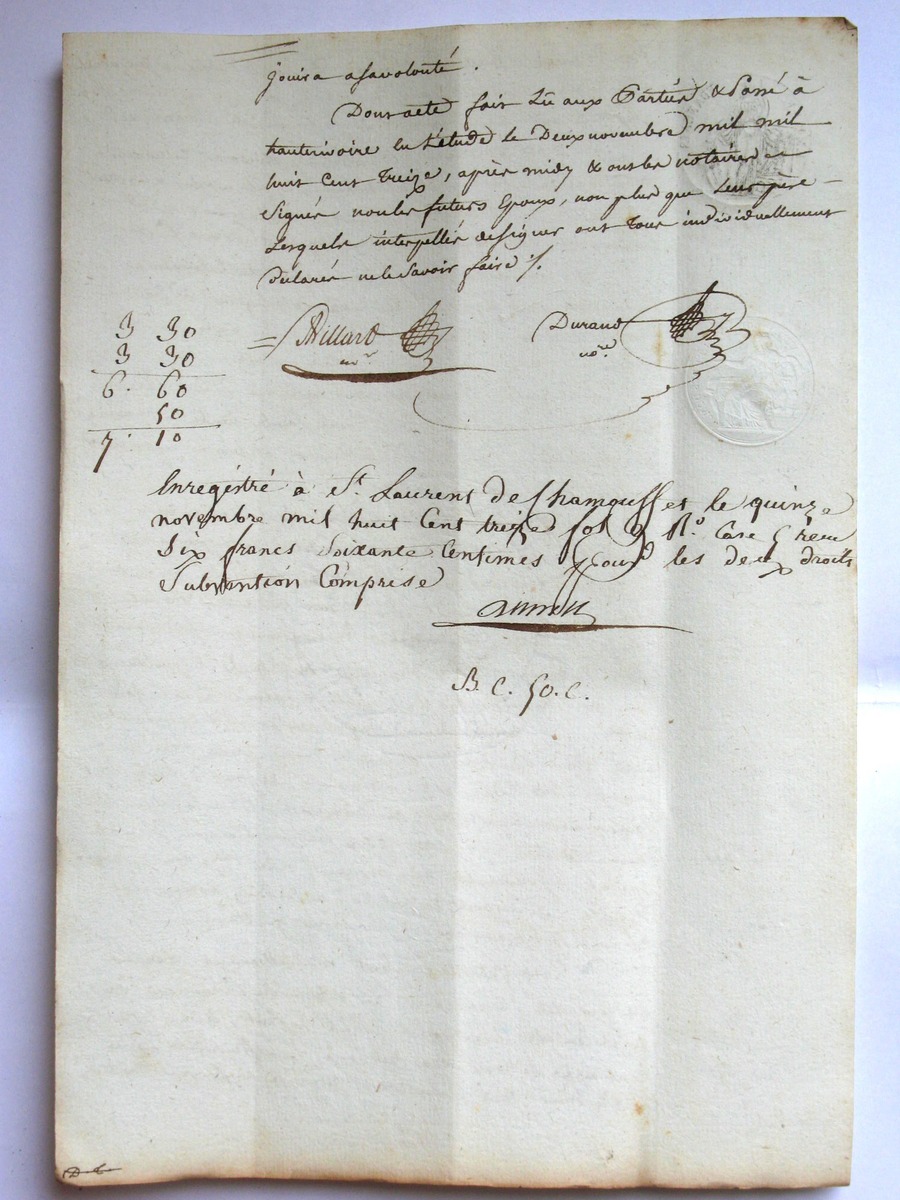 jouira asavolonté.
Dont acte fait Lû aux Partiés & Passé à
hauterivoire en L'étude le Deux novembre mil mil
huit Cent Treize, après midy & ont les notaires
signés non les futurs Epoux, non plus que Leur père
Lesquels interpellés designer ont Tous individuellement
Déclarés ne le savoir faire ./.
3 30
3 30
6. 60
50
7. 10
Villard
nore
Durand
nore.
Enregistré à St. Laurent de Chamousset le quinze
novembre mil huit Cent treize fol 9 Ro. Case 5 reçu
Six francs Soixante Centimes pour les deux droits
Subvention Comprise
B. C. 50. C.